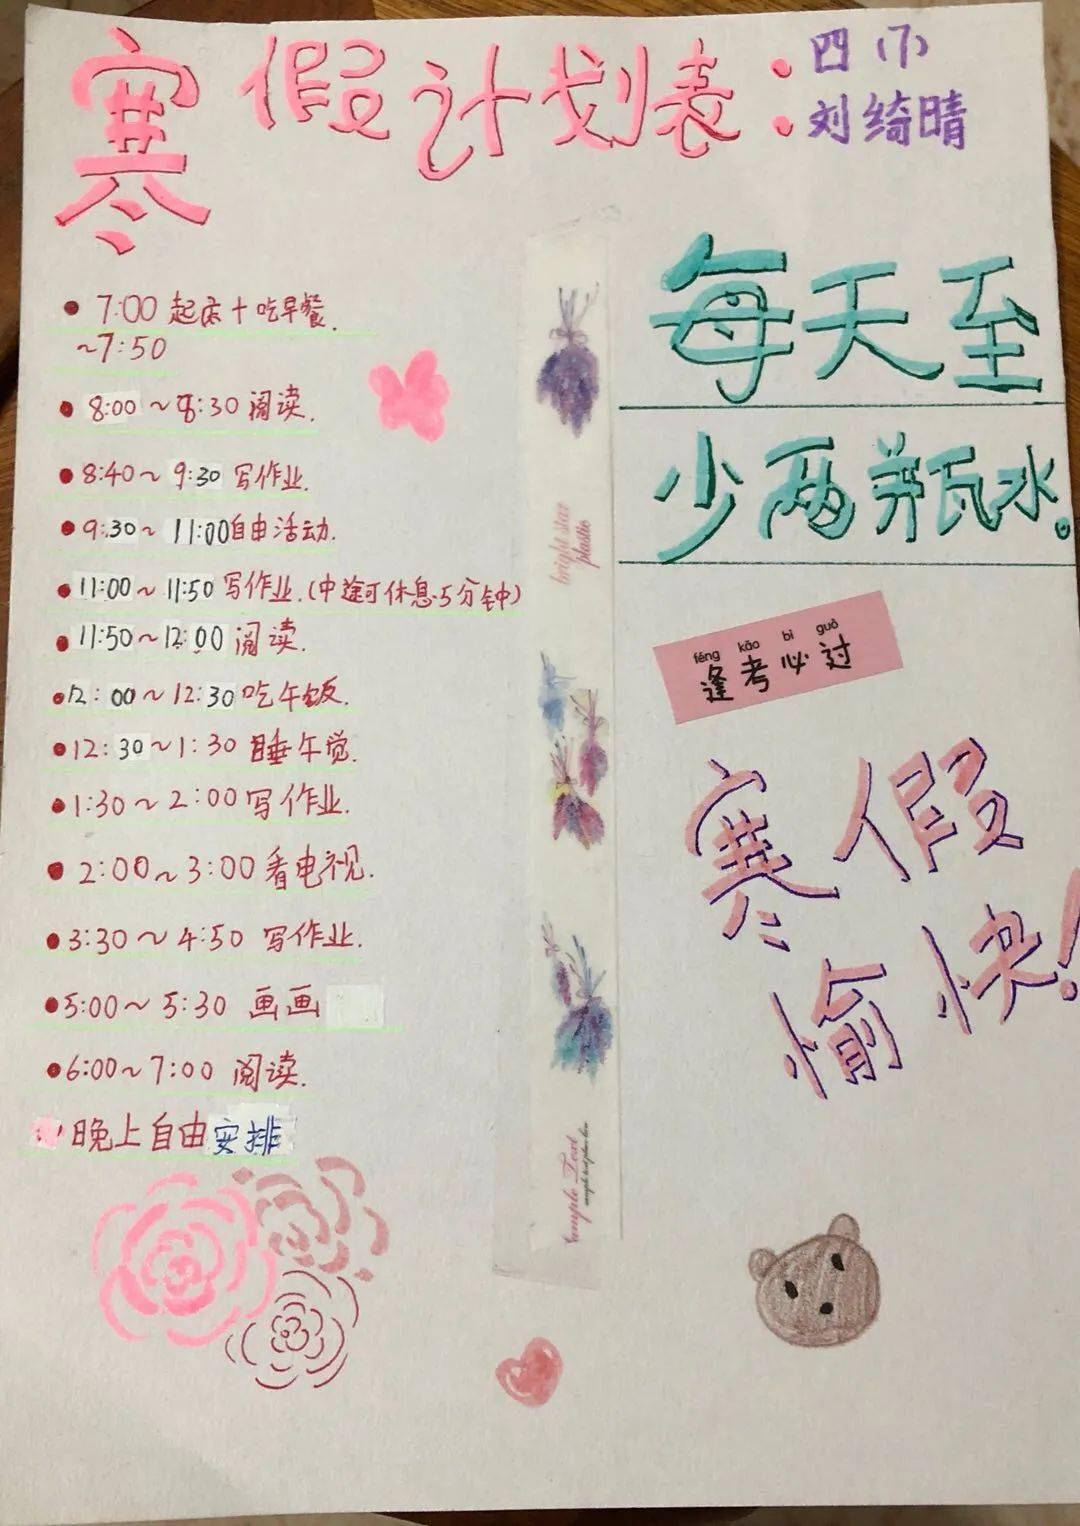 寒假计划表:
四(1)
刘绮晴
7:00 起床+吃早餐.
~7:50
8:00~8:30 阅读.
8:40~9:30 写作业.
9:30~11:00自由活动.
11:00~11:50 写作业.(中途可休息5分钟)
11:50~12:00 阅读.
12:00~12:30 吃午饭.
12:30~1:30 睡午觉.
1:30~2:00 写作业.
2:00~3:00 看电视.
3:30~4:50 写作业.
5:00~5:30 画画
6:00~7:00 阅读.
晚上自由安排
bright star
plastic
Text
每天至
少两瓶水。
féng kǎo bì guò
逢考必过
寒假
愉快!